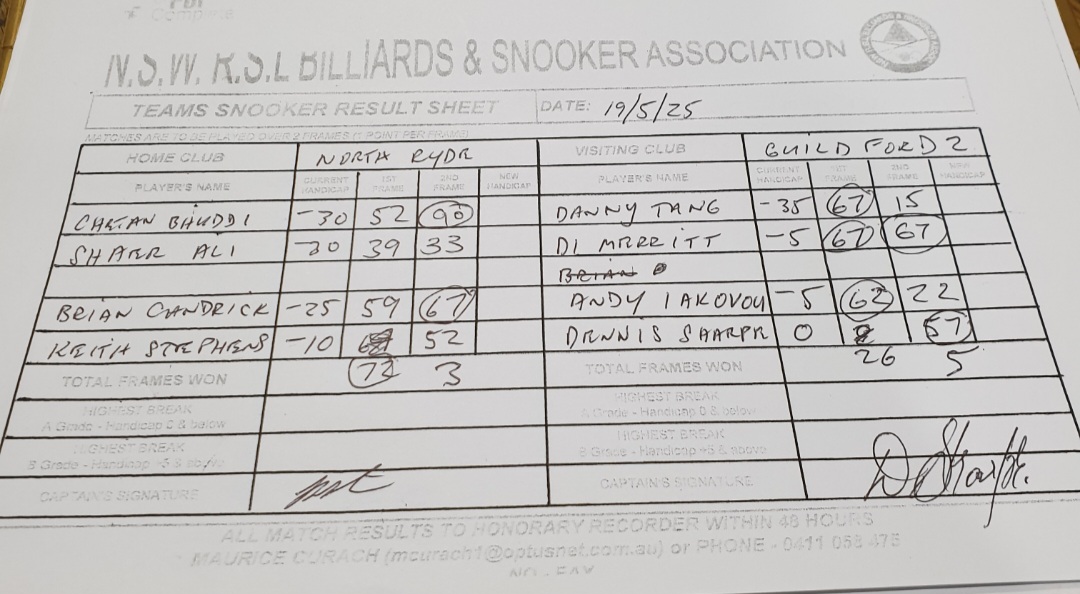 Complete
N.S.W. R.S.L BILLIARDS & SNOOKER ASSOCIATION
TEAMS SNOOKER RESULT SHEET DATE: 19/5/25
MATCHES ARE TO BE PLAYED OVER 2 FRAMES (1 POINT PER FRAME)
HOME CLUB NORTH RYDE VISITING CLUB GUILDFORD 2
PLAYER'S NAME CURRENT HANDICAP 1ST FRAME 2ND FRAME NEW HANDICAP PLAYER'S NAME CURRENT HANDICAP 1ST FRAME 2ND FRAME NEW HANDICAP
CHETAN BHUDDI -30 52 90 DANNY TANG -35 67 15
SHAER ALI -30 39 33 DI MERRITT -5 67 67
BRIAN
BRIAN CANDRICK -25 59 67 ANDY IAKOVOU -5 62 22
KEITH STEPHENS -10 52 DENNIS SHARPE 0 57
TOTAL FRAMES WON 72 3 TOTAL FRAMES WON 26 5
HIGHEST BREAK
A Grade - Handicap 0 & below
HIGHEST BREAK
A Grade - Handicap 0 & below
HIGHEST BREAK
B Grade - Handicap +5 & above
HIGHEST BREAK
B Grade - Handicap +5 & above
CAPTAIN'S SIGNATURE CAPTAIN'S SIGNATURE D Sharpe.
ALL MATCH RESULTS TO HONORARY RECORDER WITHIN 48 HOURS
MAURICE CURACH (mcurach1@optusnet.com.au) or PHONE - 0411 058 475
NO FAX